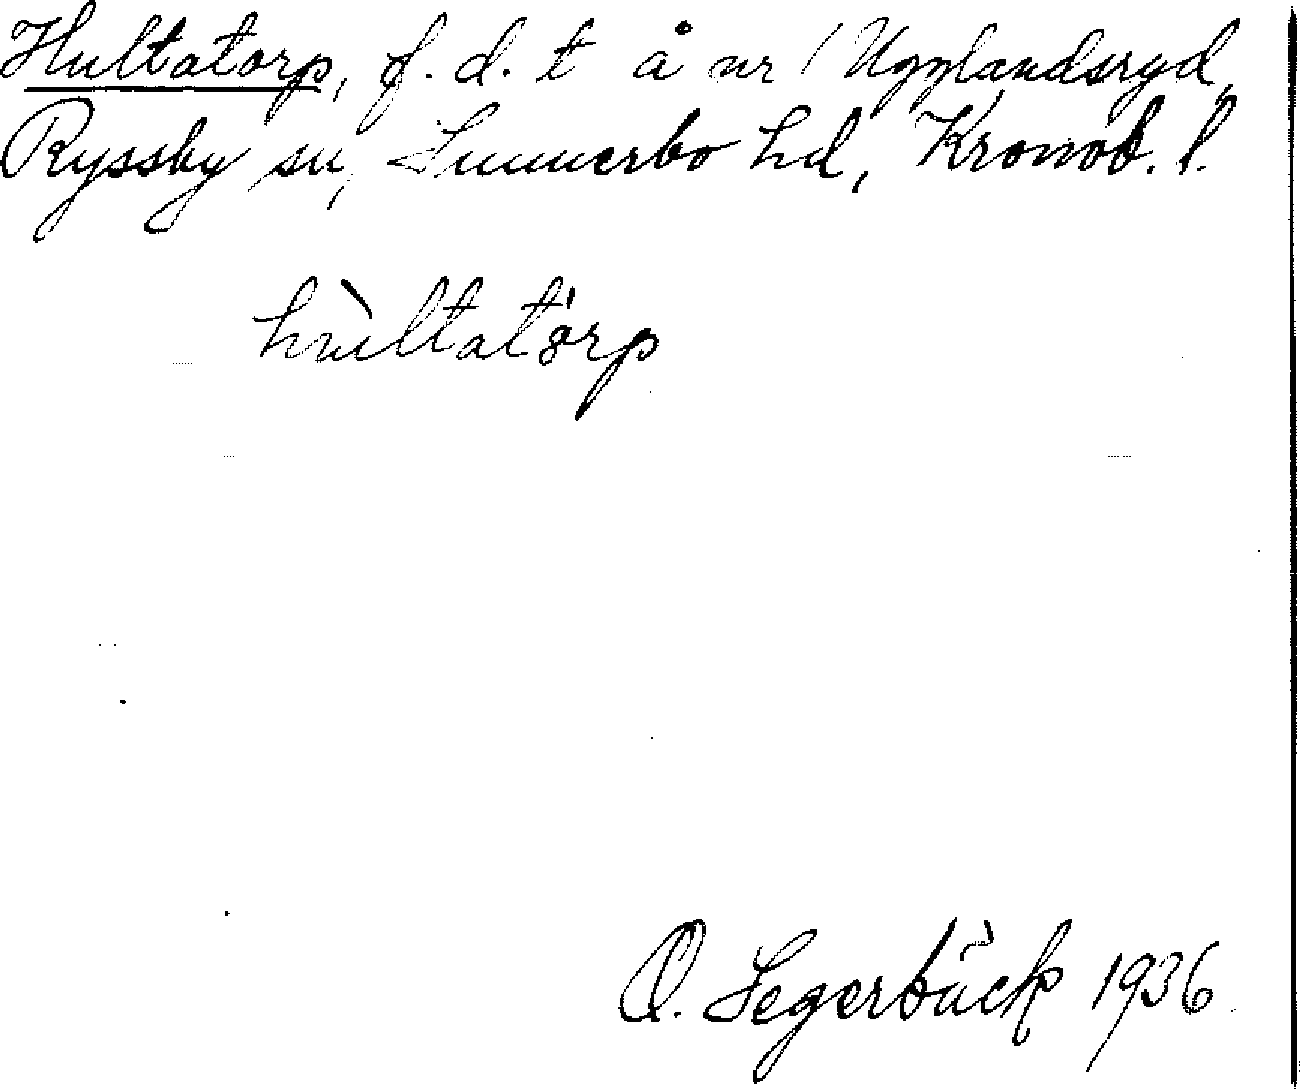 Hultatorp, f. d. t å nr 1 Ugglandsryd,
Ryssby sn, Sunnerbo hd, Kronob. l.
hùltatórp
O. Segerbäck 1936